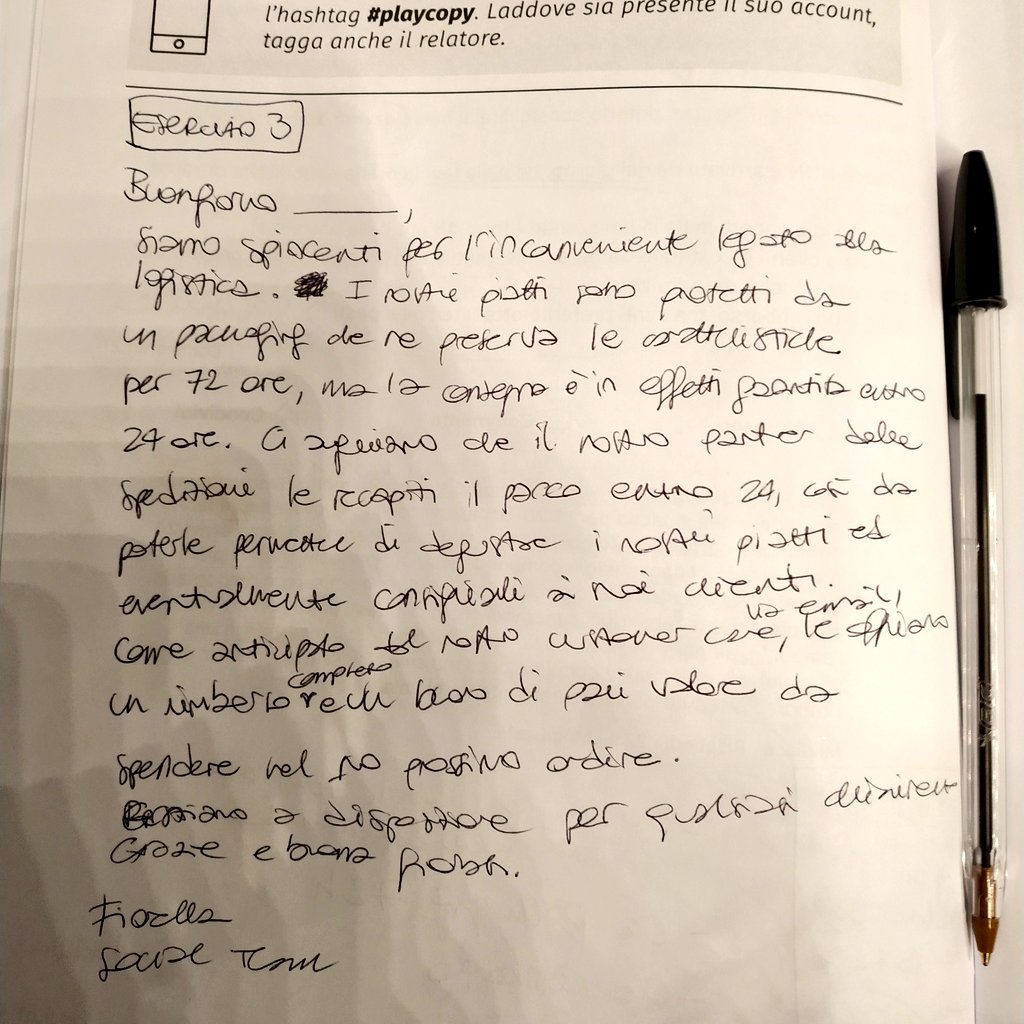 l'hashtag #playcopy. Laddove sia presente il suo account,
tagga anche il relatore.
ESERCIZIO 3
Buongiorno ______,
Siamo spiacenti per l'inconveniente legato alla
logistica. I nostri piatti sono protetti da
un packaging che ne preserva le caratteristiche
per 72 ore, ma la consegna è in effetti garantita entro
24 ore. Ci auguriamo che il nostro partner delle
spedizioni le recapiti il pacco entro 24, così da
poterle permettere di degustare i nostri piatti ed
eventualmente consigliarli a noi clienti.
via email,
Come anticipato dal nostro customer care, le offriamo
completo
un rimborso e un buono di pari valore da
spendere nel suo prossimo ordine.
Restiamo a disposizione per qualsiasi chiarimento
Grazie e buona giornata.
Fiorella
Social Team